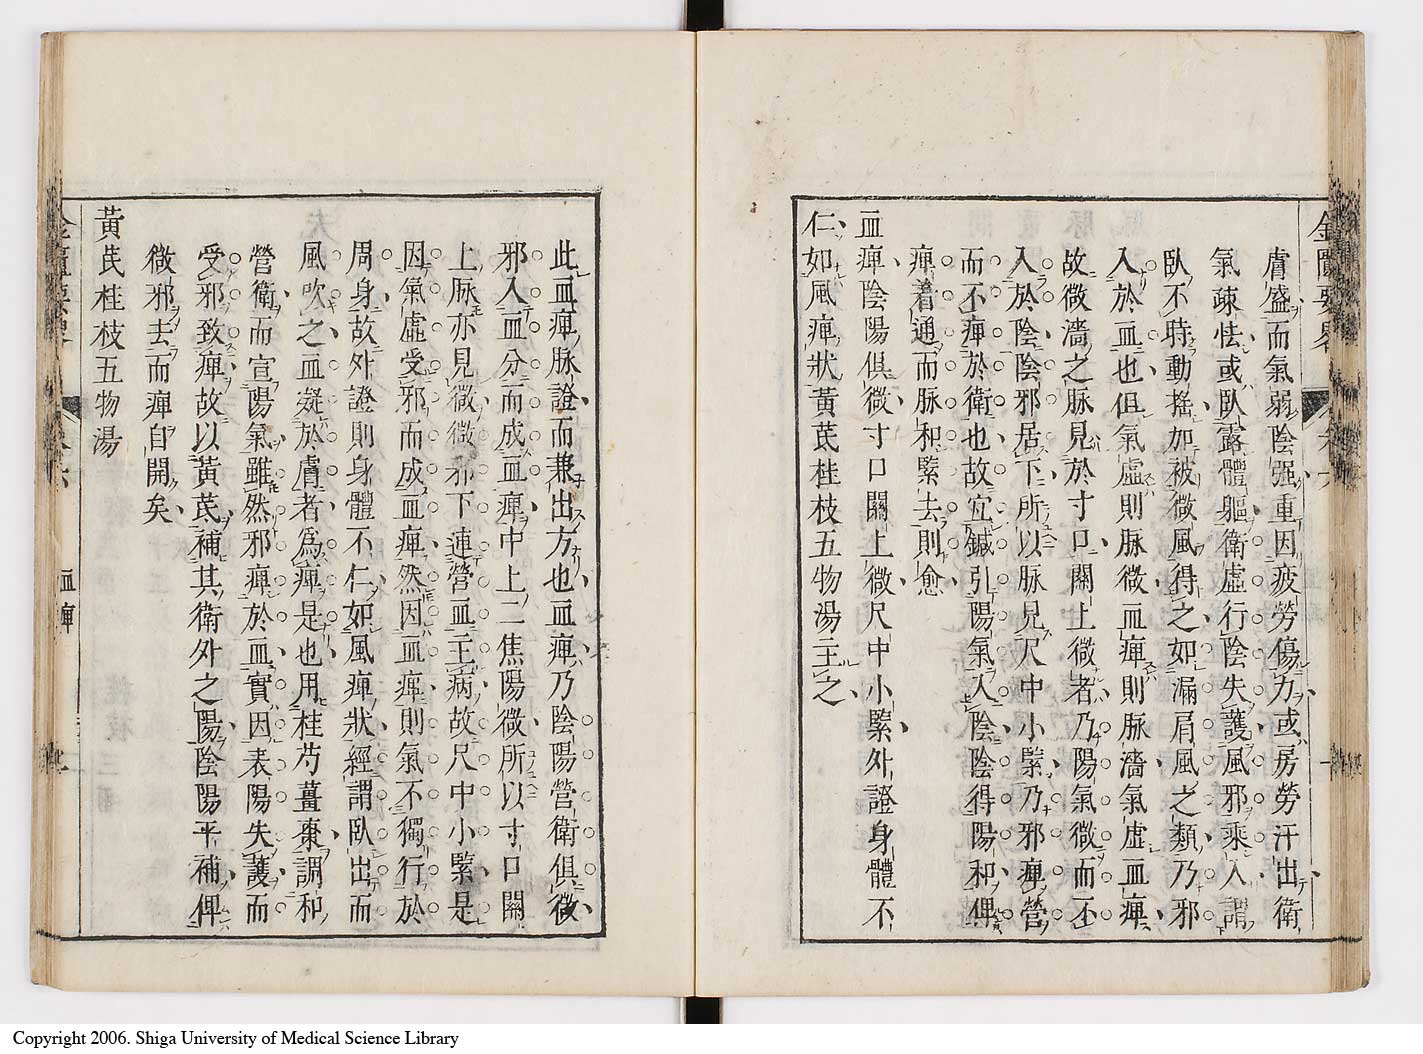 膚盛而氣弱陰强重因疲勞傷力或房勞汗出衛
氣疎怯或臥露體軀衛虛行陰失護風邪乘入謂
臥不時動搖加被微風得之如漏肩風之類乃邪
入於血也但氣虛則脉微血痺則脉濇氣虛血痺
故微濇之脉見於寸口關上微者乃陽氣微而不
入於陰陰邪居下所以脉見尺中小緊乃邪痺營
而不痺於衛也故宜鍼引陽氣入陰陰得陽和俾
痺着通而脉和緊去則愈
血痺陰陽俱微寸口關上微尺中小緊外證身體不
仁如風痺狀黃茋桂枝五物湯主之
此血痺脉證而兼出方也血痺乃陰陽營衛俱微
邪入血分而成血痺中上二焦陽微所以寸口關
上脉亦見微微邪下連營血主病故尺中小緊是
因氣虛受邪而成血痺然因血痺則氣不獨行於
周身故外證則身體不仁如風痺狀經謂臥出而
風吹之血凝於膚者為痺是也用桂芍薑棗調和
營衛而宣陽氣雖然邪痺於血實因表陽失護而
受邪致痺故以黃茋補其衛外之陽陰陽平補俾
微邪去而痺自開矣
黃茋桂枝五物湯
血痺
Copyright 2006. Shiga University of Medical Science Library